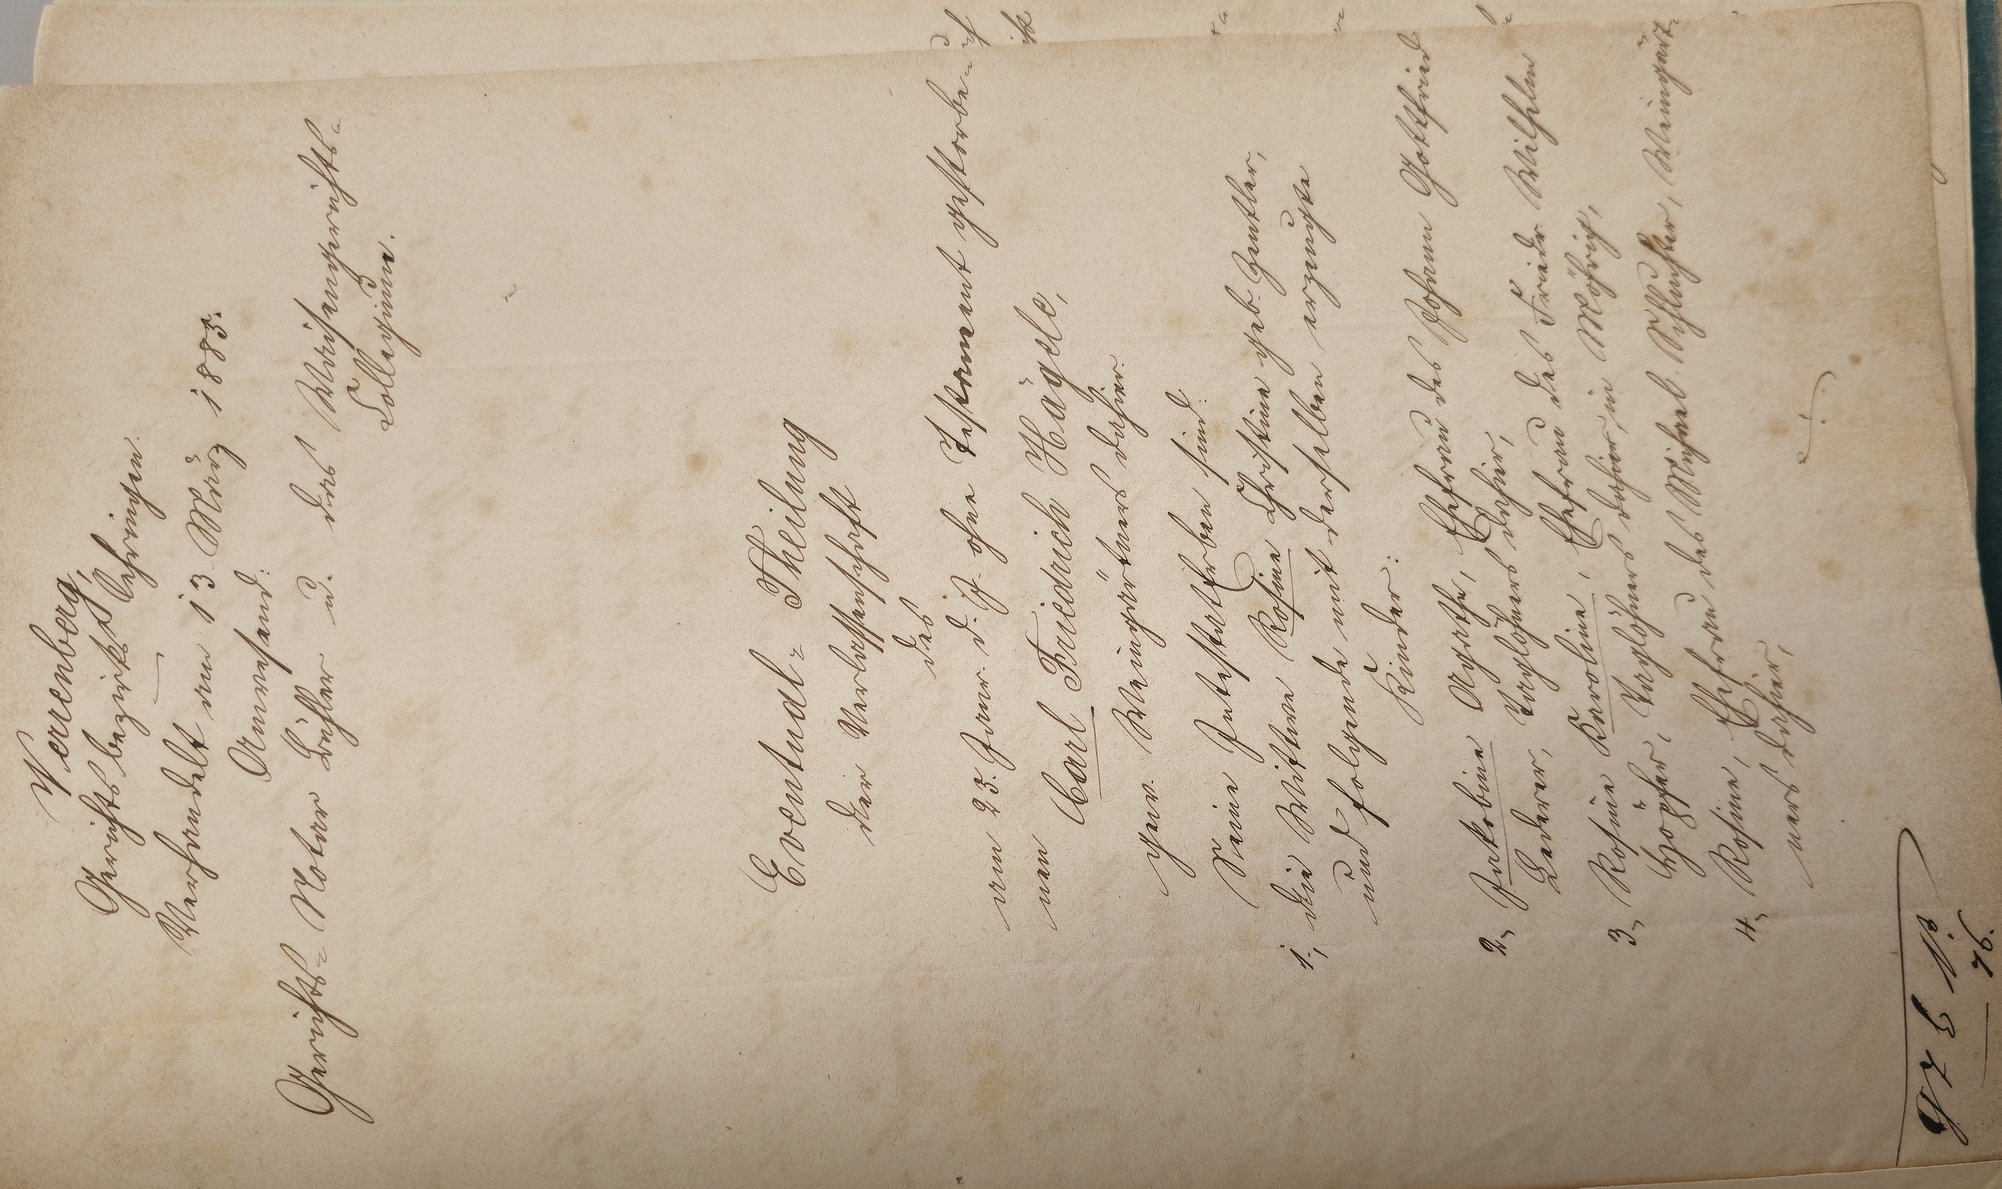 Verrenberg,
Gerichtsbezirks Oehringen
Verhandelt am 13. März 1883.
Anwesend:
Gerichts-Notar Bühler u. das Waisengerichts-
Collegium.
Eventual-Theilung
der Verlassenschaft
des
am 23. Januar d. J. ohne Testament gestorbe-
nen Carl Friedrich Hägele,
gew. Weingärtners dahier.
Seine Intestaterben sind:
1, die Wittwe Rosine Christine geb.
und folgende mit derselben erzeugte
Kinder:
2, Jakobine Agathe, Ehefrau des Johann Gottfried
Lederer, Taglöhners dahier,
3, Rosine Karoline, Ehefrau des Friedr. Wilhelm
Taglöhners dahier, in Möhrig,
4, Rosine, Ehefrau des Michael Weingärt-
ners dahier,